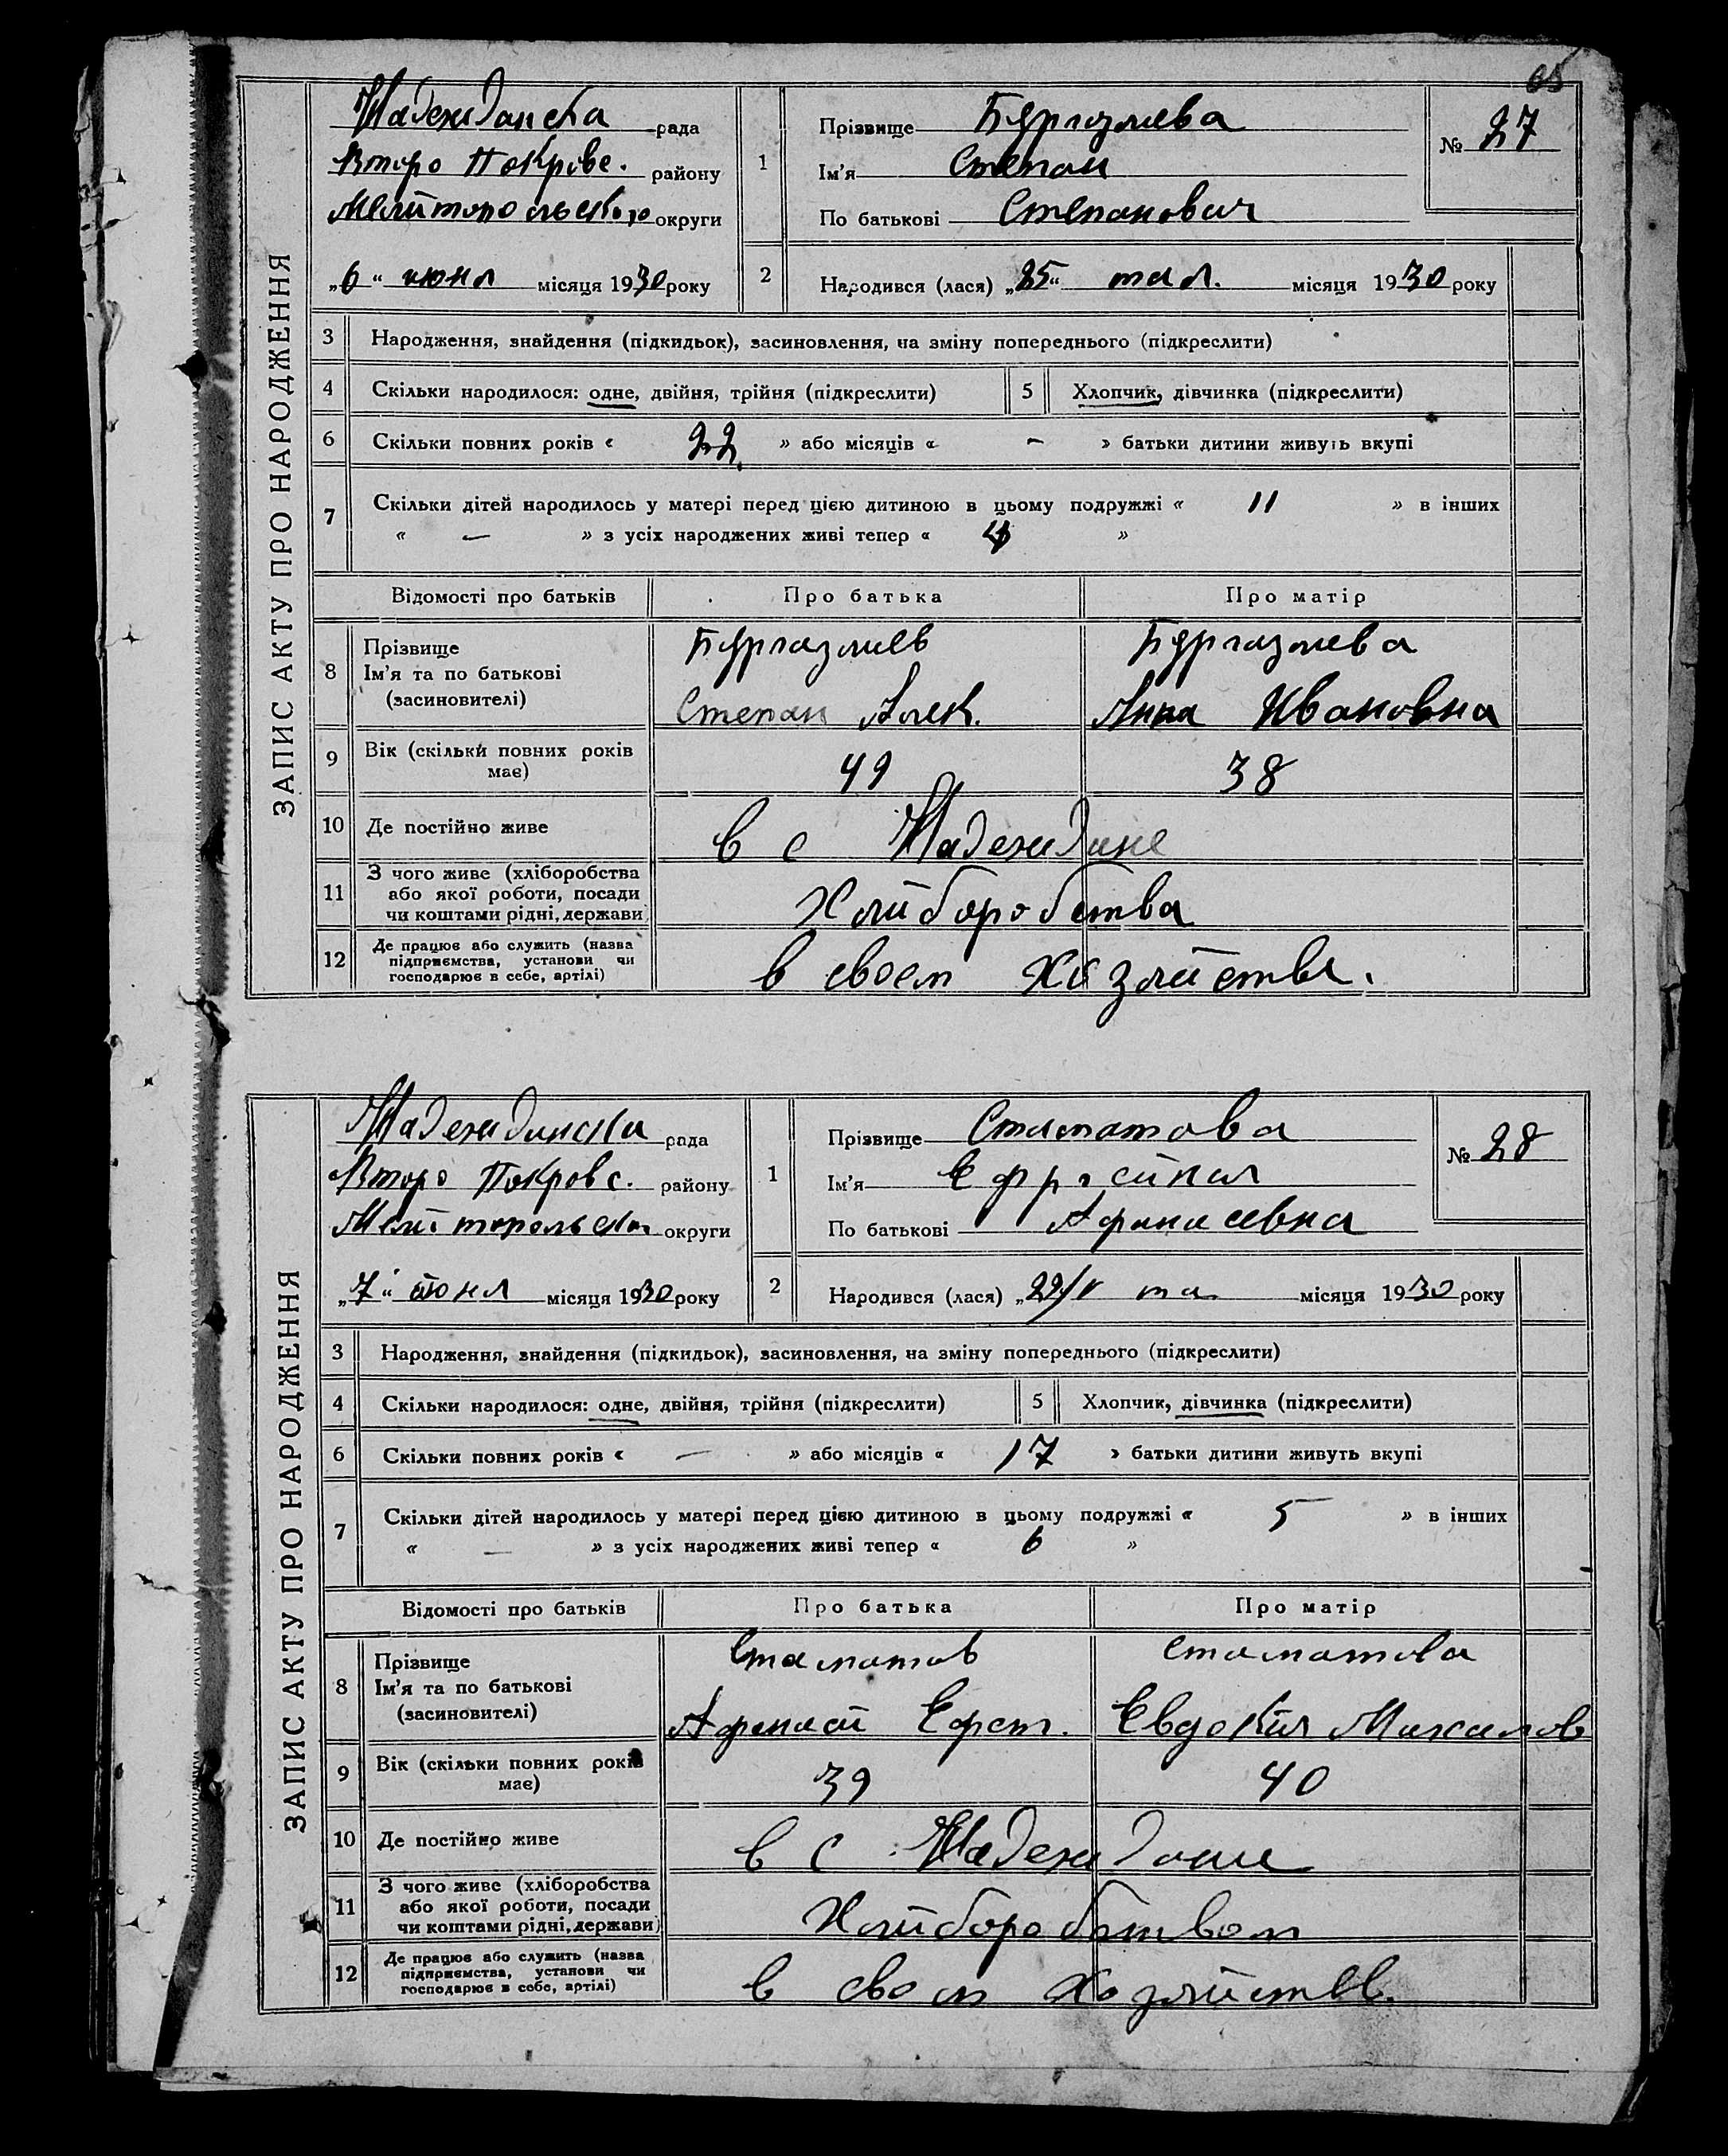 65
ЗАПИС АКТУ ПРО НАРОДЖЕННЯ
Надеждинска рада
Второ Покровс. району
Мелитопольского округи
„6“ июня місяця 1930 року
1
Прізвище Бургазлиева
Ім'я Степан
По батькові Степанович
№ 27
2
Народився (лася) „25“ мая. місяця 1930 року
3 Народження, знайдення (підкидьок), засиновлення, на зміну попереднього (підкреслити)
4 Скільки народилося: одне, двійня, трійня (підкреслити) 5 Хлопчик, дівчинка (підкреслити)
6 Скільки повних років « 22 » або місяців « – » батьки дитини живуть вкупі
7 Скільки дітей народилось у матері перед цією дитиною в цьому подружжі « 11 » в інших
« — » з усіх народжених живі тепер « 4 »
Відомості про батьків Про батька Про матір
8 Прізвище
Ім'я та по батькові
(засиновителі)
Бургазлиев Бургазлиева
Степан Алек. Анна Ивановна
9 Вік (скільки повних років має) 49 38
10 Де постійно живе в с Надеждине
11 З чого живе (хліборобства
або якої роботи, посади
чи коштами рідні, держави)
Хлиборобства
12 Де працює або служить (назва
підприємства, установи чи
господарює в себе, артілі)
в своем хозяйстве.
ЗАПИС АКТУ ПРО НАРОДЖЕННЯ
Надеждинска рада
Второ Покровс. району
Мелитопольско округи
„7“ июня місяця 1930 року
1
Прізвище Стаматова
Ім'я Ефросиния
По батькові Афанасевна
№ 28
2
Народився (лася) „29/V ма місяця 1930 року
3 Народження, знайдення (підкидьок), засиновлення, на зміну попереднього (підкреслити)
4 Скільки народилося: одне, двійня, трійня (підкреслити) 5 Хлопчик, дівчинка (підкреслити)
6 Скільки повних років « — » або місяців « 17 » батьки дитини живуть вкупі
7 Скільки дітей народилось у матері перед цією дитиною в цьому подружжі « 5 » в інших
« — » з усіх народжених живі тепер « 6 »
Відомості про батьків Про батька Про матір
8 Прізвище
Ім'я та по батькові
(засиновителі)
Стаматов Стаматова
Афанасй Евдокия Михаилов
9 Вік (скільки повних років має) 39 40
10 Де постійно живе в с Надеждине
11 З чого живе (хліборобства
або якої роботи, посади
чи коштами рідні, держави)
Хлиборобством
12 Де працює або служить (назва
підприємства, установи чи
господарює в себе, артілі)
в своем хозяйстве.